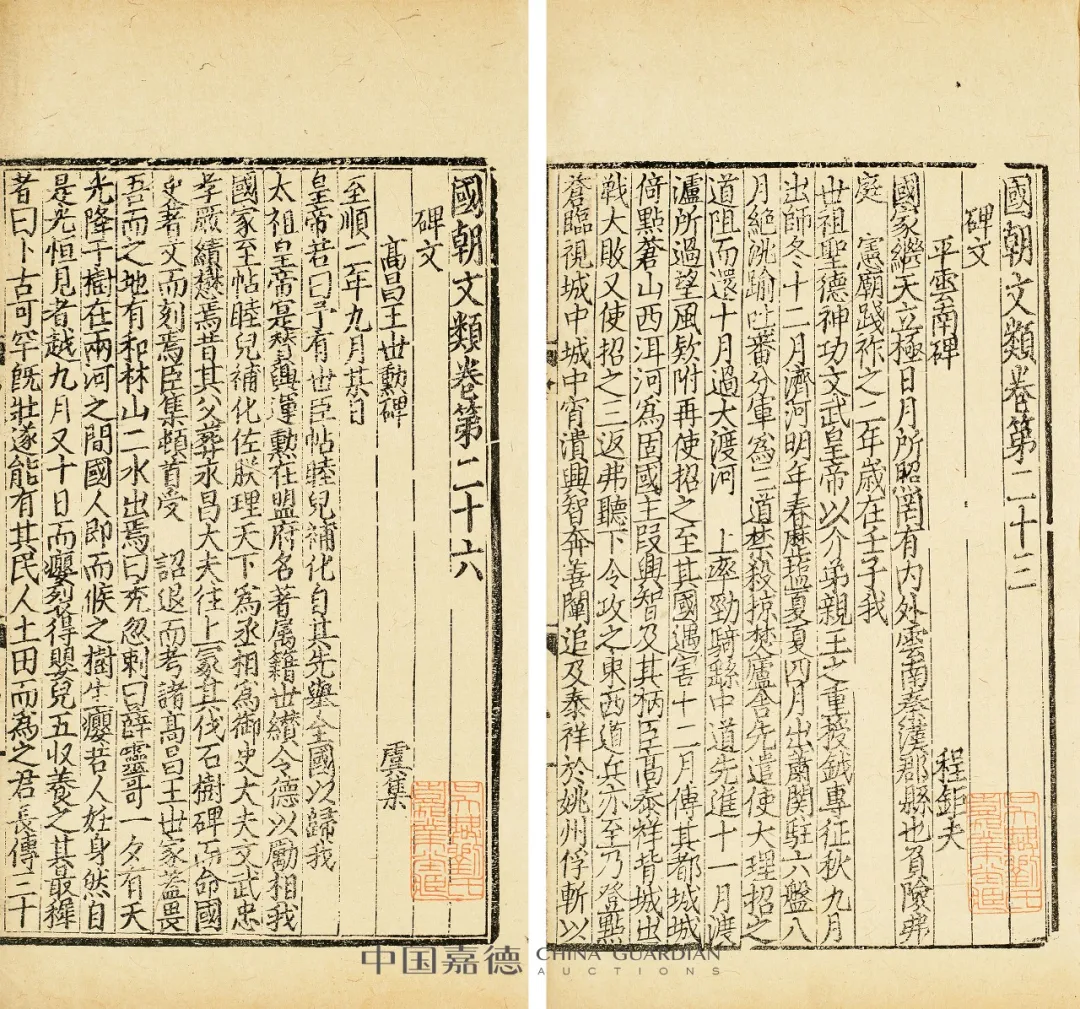 國朝文類卷第二十三
碑文
平雲南碑 程鉅夫
國家繼天立極日月所照罔有内外雲南秦漢郡縣也負險弗
庭 憲廟踐祚之二年歲在壬子我
世祖聖德神功文武皇帝以介弟親王之重授鉞專征秋九月
出師冬十二月濟河明年春歷鹽夏夏四月出蕭関駐六盤八
月絶洮踰吐蕃分軍爲三道禁殺掠焚廬舍先遣使大理招之
道阻而還十月過大渡河 上率勁騎繇中道先進十一月渡
瀘所過望風欵附再使招之至其國遇害十二月傅其都城城
倚點蒼山西洱河爲固國主段興智及其柄臣高泰祥背城出
戰大敗又使招之三返弗聽下令攻之東西道兵亦至乃登點
蒼臨視城中城中宵潰興智奔善闡追及泰祥於姚州俘斬以
國朝文類卷第二十六
碑文
高昌王世勲碑 虞集
至順二年九月某日
皇帝若曰予有世臣帖睦兒補化自其先舉全國以歸我
太祖皇帝寔贊興運勲在盟府名著屬籍世纉令德以勵相我
國家至帖睦兒補化佐朕理天下爲丞相爲御史大夫文武忠
孝嚴績懋焉昔其父葬永昌大夫往上冢其伐石樹碑而命國
史著文而刻焉臣集頓首受 詔退而考諸髙昌王世家蓋畏
吾而之地有和林山二水出焉曰禿忽剌曰薛靈哥一夕有天
光降于樹在兩河之間國人即而候之樹生癭若人姙身然自
是光恒見者越九月又十日而癭裂得嬰兒五収養之其最稺
者曰卜古可罕旣壯遂能有其民人土田而爲之君長傳三十
中国嘉德 CHINA GUARDIAN
AUCTIONS